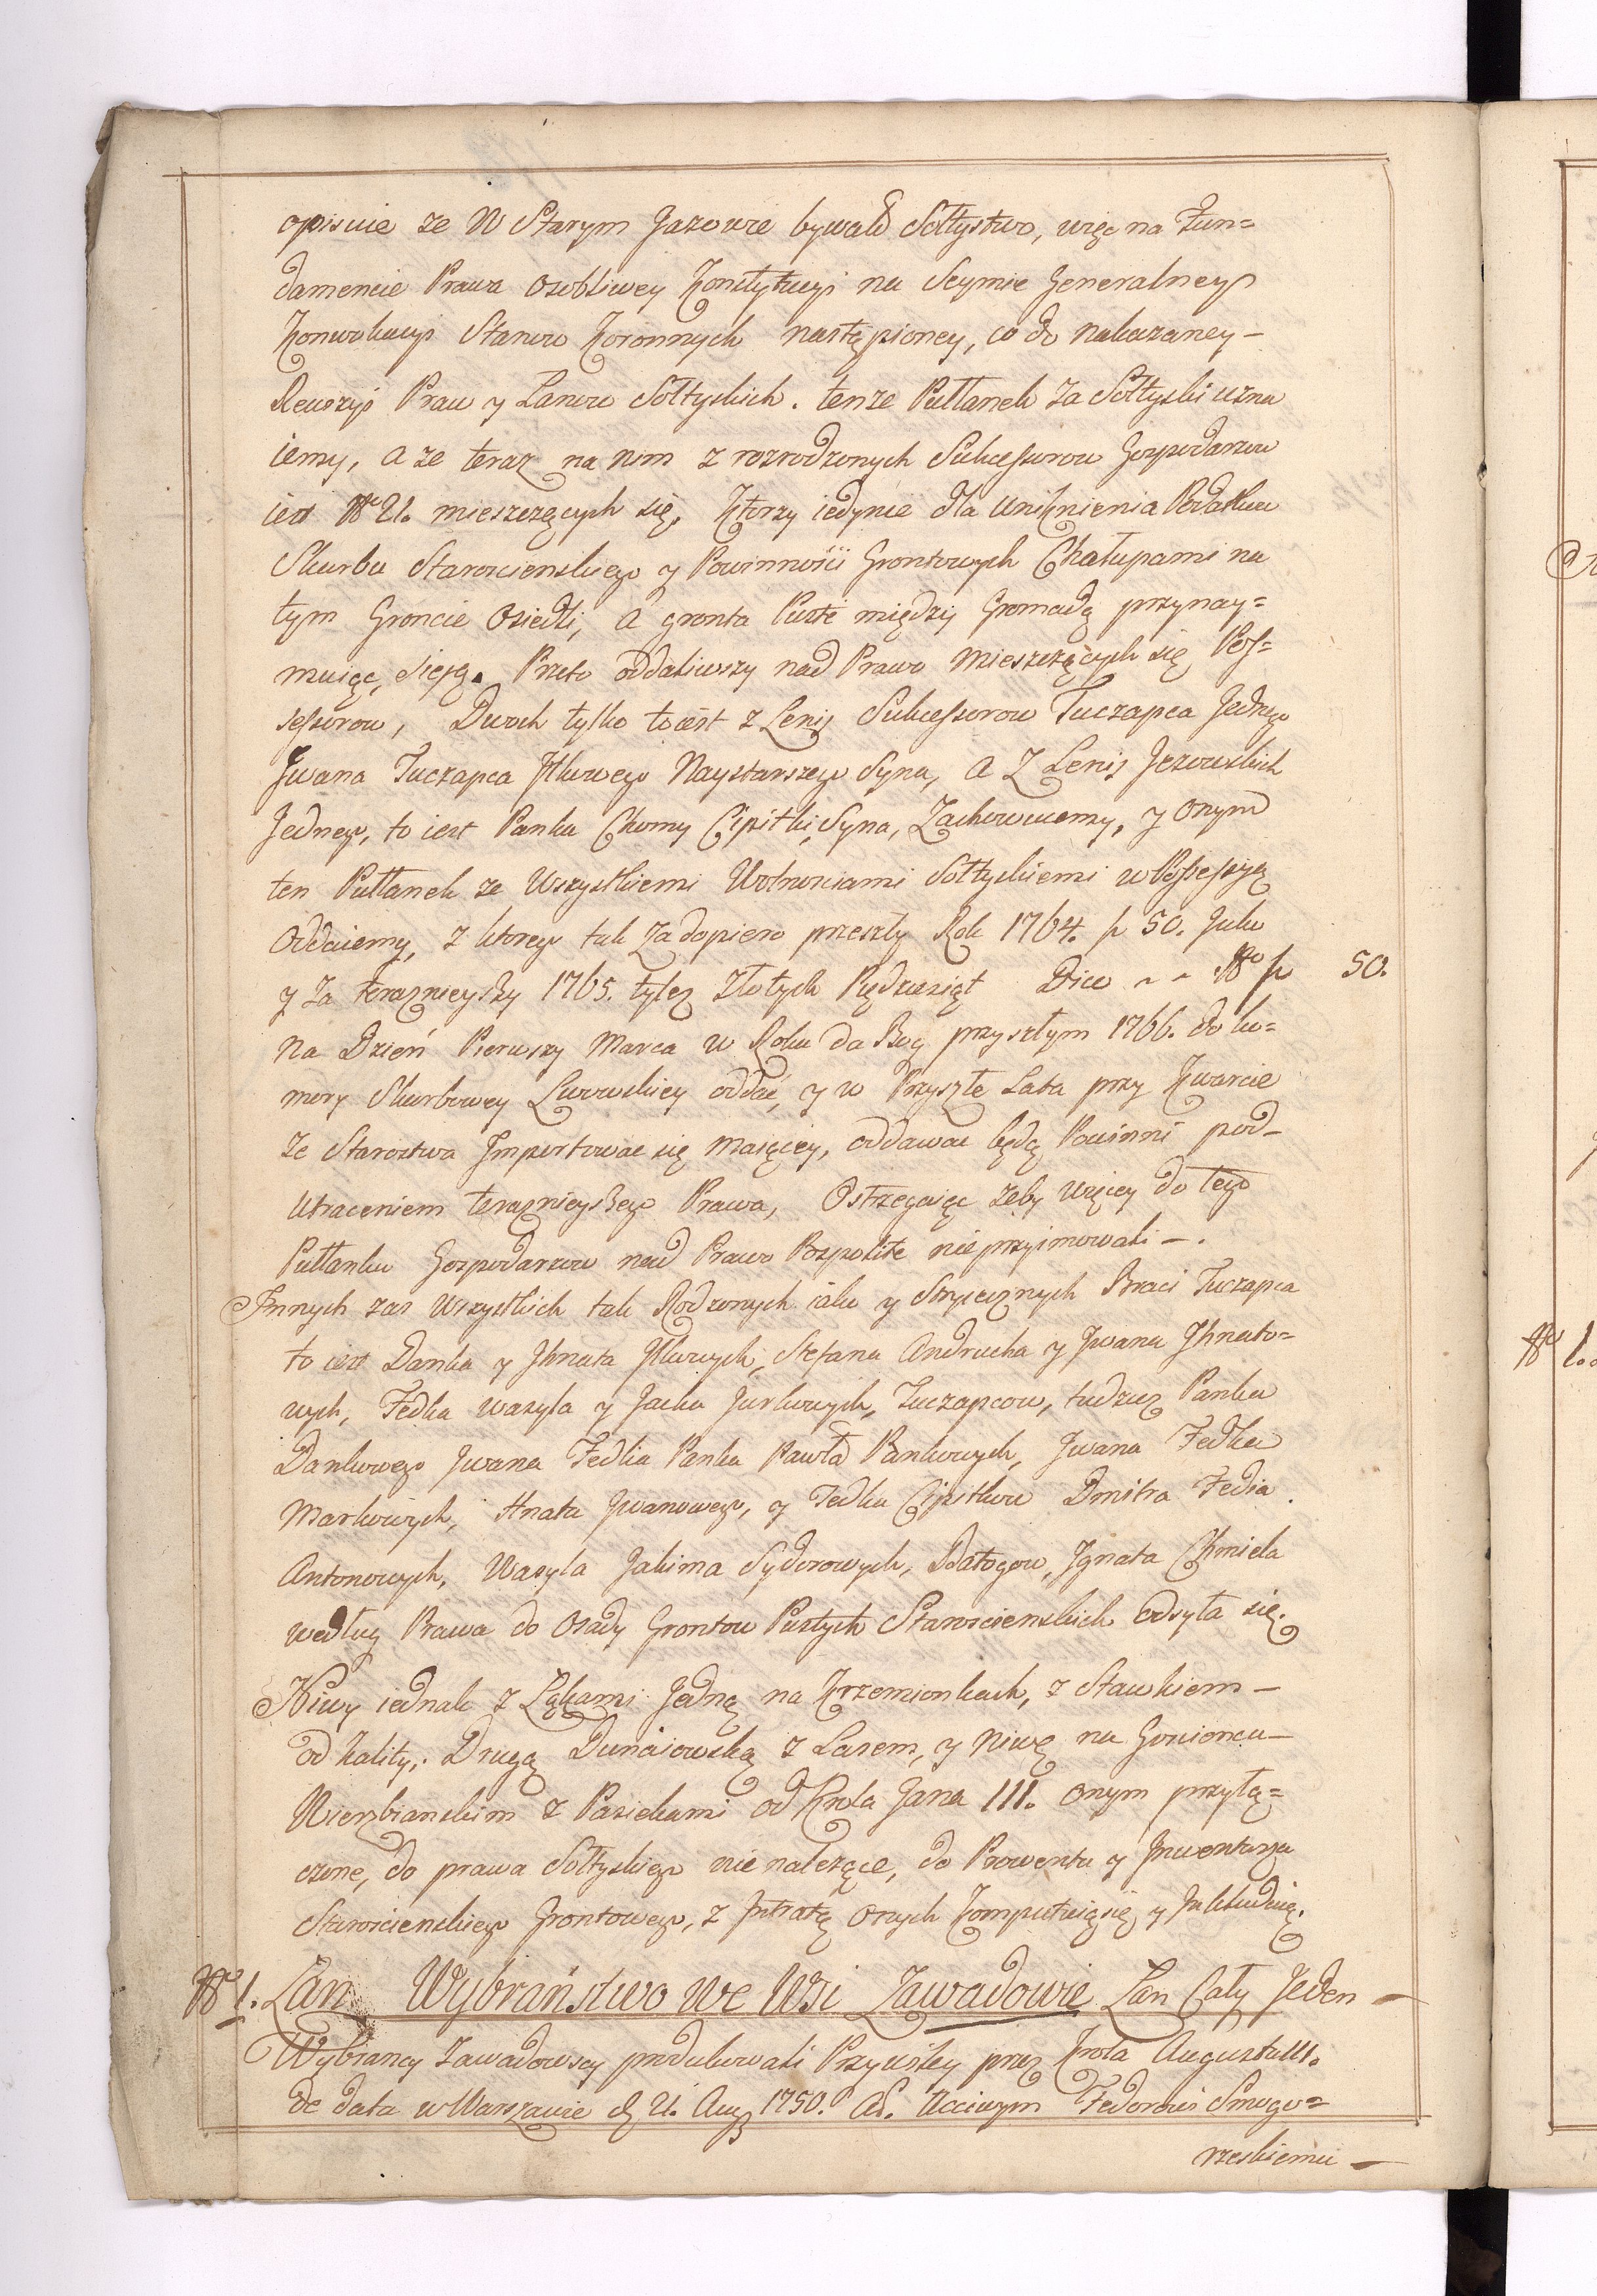 opisuie ze W Starym Jazowie bywało Sołtystwo, więc na Fun=
damencie Prawa osobliwey Konstytucyi na Seymie Generalney
Konwokacyi Stanow Koronnych nastąpioney, co do nakazaney –
Rewizyi Praw y Łanow Sołtyskich. tenze Pułłanek za Sołtyski uzna
iemy, a ze teraz na nim z rozrodzonych Sukcessorow Gospodarzow
iest Nro 21. mieszczących się, Ktorzy iedynie dla uniknienia Podatkow
Skarbu Starościenskiego y Powinności Grontowych Chałupami na
tym Groncie Osiedli, a gronta Puste między Gromadą przynay=
muiąc, sieją. Przeto oddaliwszy nad Prawo mieszczących się Pos=
sessorow, Dwoch tylko to iest z Lenij Sukcessorow Tuczapca Jednego
Jwana Tuczapca Jlkowego Naystarszego Syna, a Z Lenij Jezowskich
Jednego, to iest Panka Chomy Cipitki Syna, Zachowuiemy, y onym
ten Pułłanek ze Wszystkiemi Wolnosciami Sołtyskiemi w Possessyą
Oddaiemy, z ktorego tak za dopiero przeszły Rok 1764. fl 50. Jako
y za teraznieyszy 1765. tylez Złotych Piędziesiąt Dico ~ ~ Nro fl 50.
na Dzień Pierwszy Marca w Roku da Bog przyszłym 1766. do ko=
mory Skarbowey Lwowskiey oddać, y w Przyszłe Lata przy Kwarcie
ze Starostwa Jmportować się maiącey, oddawac będą Powinni pod –
utraceniem teraznieyszego Prawa, Ostrzegaiąc zeby więcey do tego
Pułłanku Gospodarzow nad Prawo Pospolite nie przyimowali – .
Jnnych zas Wszystkich tak Rodzonych iako y Stryiecznych Braci Tuczapca
to iest Danka y Jhnata Jlkowych, Stefana Andrucha y Jwana Jhnato=
wych, Fedka Wasyla y Jacka Jurkowych, Tuczapcow, tudziesz Panka
Dankowego Jwana Fedka Panka Pawła Pankowych, Jwana Fedka
Markowych, Hnata Jwanowego, y Fedka Cipitkow Dmitra Fedia
Antonowych, Wasyla Jakima Sydorowych, Batogow, Jgnata Chmiela
według Prawa do Osady Grontow Pustych Starościenskich odsyła się.
Niwy iednak z Łąkami Jedną na Krzemionkach, z Stawkiem –
od kality; Drugą Dunaiowską z Lasem, y niwę na Goscieńcu –
Wierzbianskim z Pasiekami od Krola Jana III. onym przyłą=
czone, do prawa Sołtyskiego nie nalezące, do Prowentu y Jnwentarza
Starościenskiego Grontowego, z Jntratą onych Komputuią się y Jnkluduią.
Nro 1. Łan Wybraństwo we Wsi Zawadowie Łan Cały Jeden –
Wybrancy Zawadowscy produkowali Przywiley przez Krola Augusta III.
de data w Warszawie d. 21. Aug 1750. Ao. Uczciwym Fedorowi Smogo=
rzeskiemu –